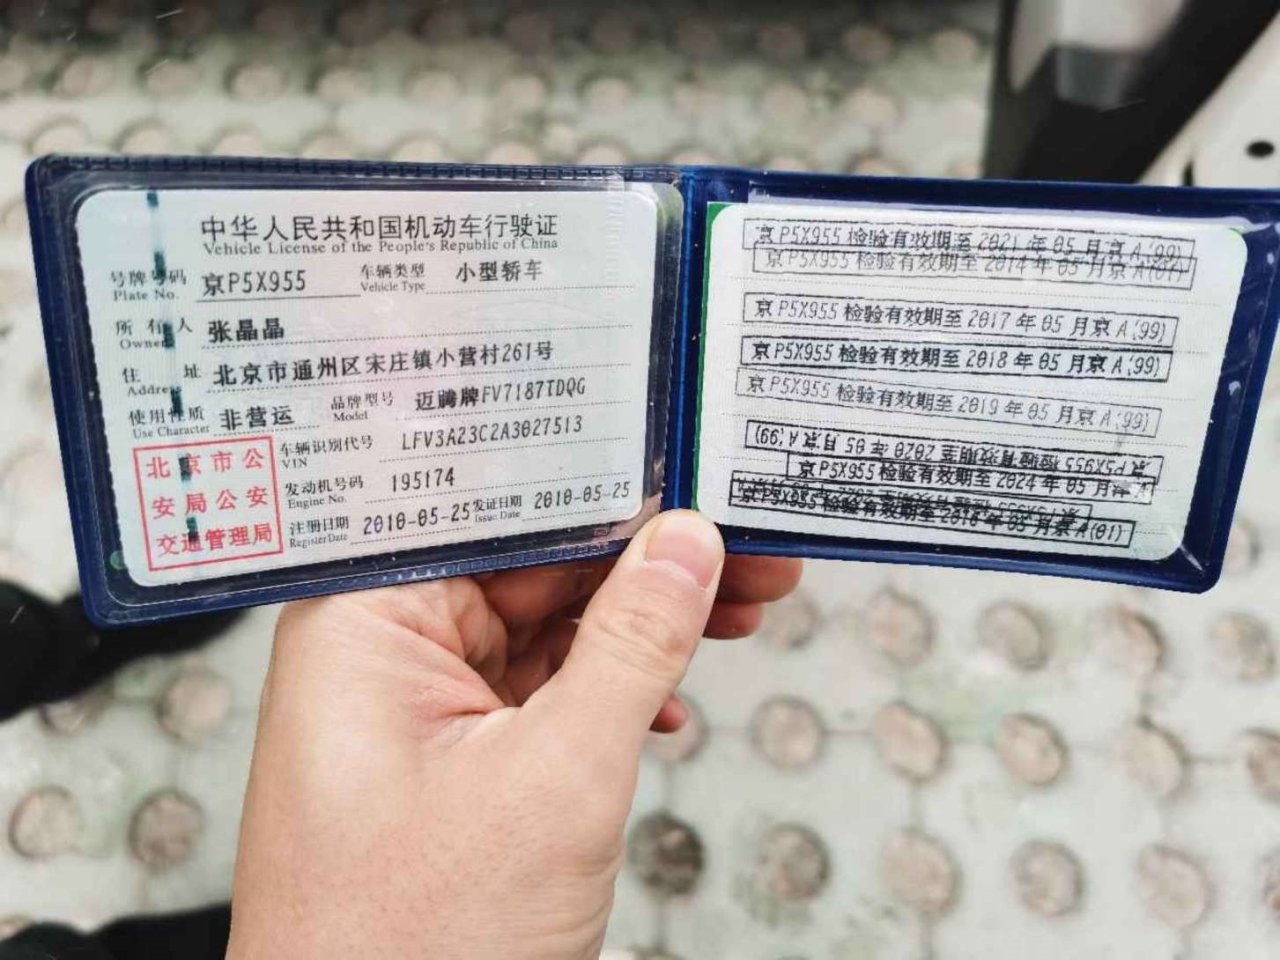 中华人民共和国机动车行驶证
Vehicle License of the People's Republic of China
号牌号码 京P5X955 车辆类型 小型轿车
Plate No. Vehicle Type
所有人 张晶晶
Owner
住址 北京市通州区宋庄镇小营村261号
Address
使用性质 非营运 品牌型号 迈腾牌FV7187TDQG
Use Character Model
车辆识别代号 LFV3A23C2A3027513
VIN
发动机号码 195174
Engine No.
注册日期 2010-05-25 发证日期 2010-05-25
Register Date Issue Date
北京市公
安局公安
交通管理局
京P5X955 检验有效期至 2021 年 05 月京 A(99)
京P5X955 检验有效期至 2014 年 05 月京 A(01)
京P5X955 检验有效期至 2017 年 05 月京 A(99)
京P5X955 检验有效期至 2018 年 05 月京 A(99)
京P5X955 检验有效期至 2019 年 05 月京 A(99)
京P5X955 检验有效期至 2020 年 05 月京 A(99)
京P5X955 检验有效期至 2024 年 05 月
京P5X955 检验有效期至 2016 年 05 月京 A(01)